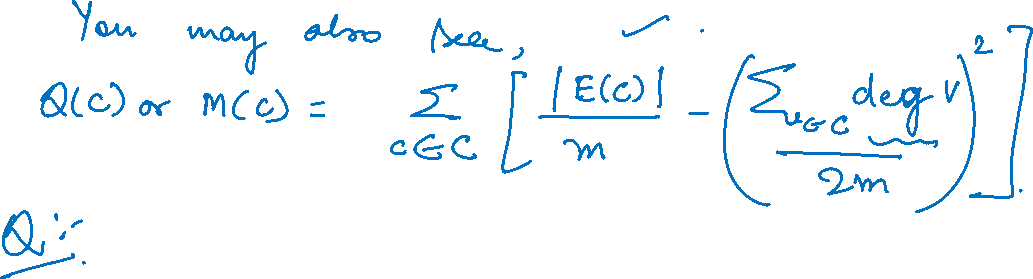 You may also see, ✓.
Q(C) or M(C) = ∑_{c∈C} [ |E(C)| / m - ( ∑_{v∈C} deg v / 2m )² ]
Q:-